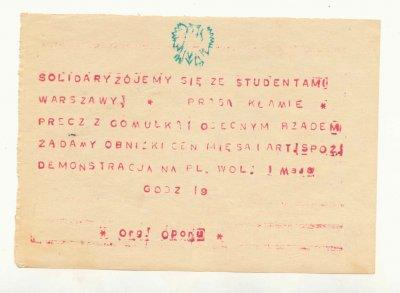 SOLIDARYZUJEMY SIĘ ZE STUDENTAMI
WARSZAWY! * PRASA KŁAMIE *
PRECZ Z GOMUŁKĄ I OBECNYM RZĄDEM
ŻĄDAMY OBNIŻKI CEN MIĘSA I ART. SPOŻ!
DEMONSTRACJA NA PL. WOL. 1 Maja
GODZ 19
* org! oporu *